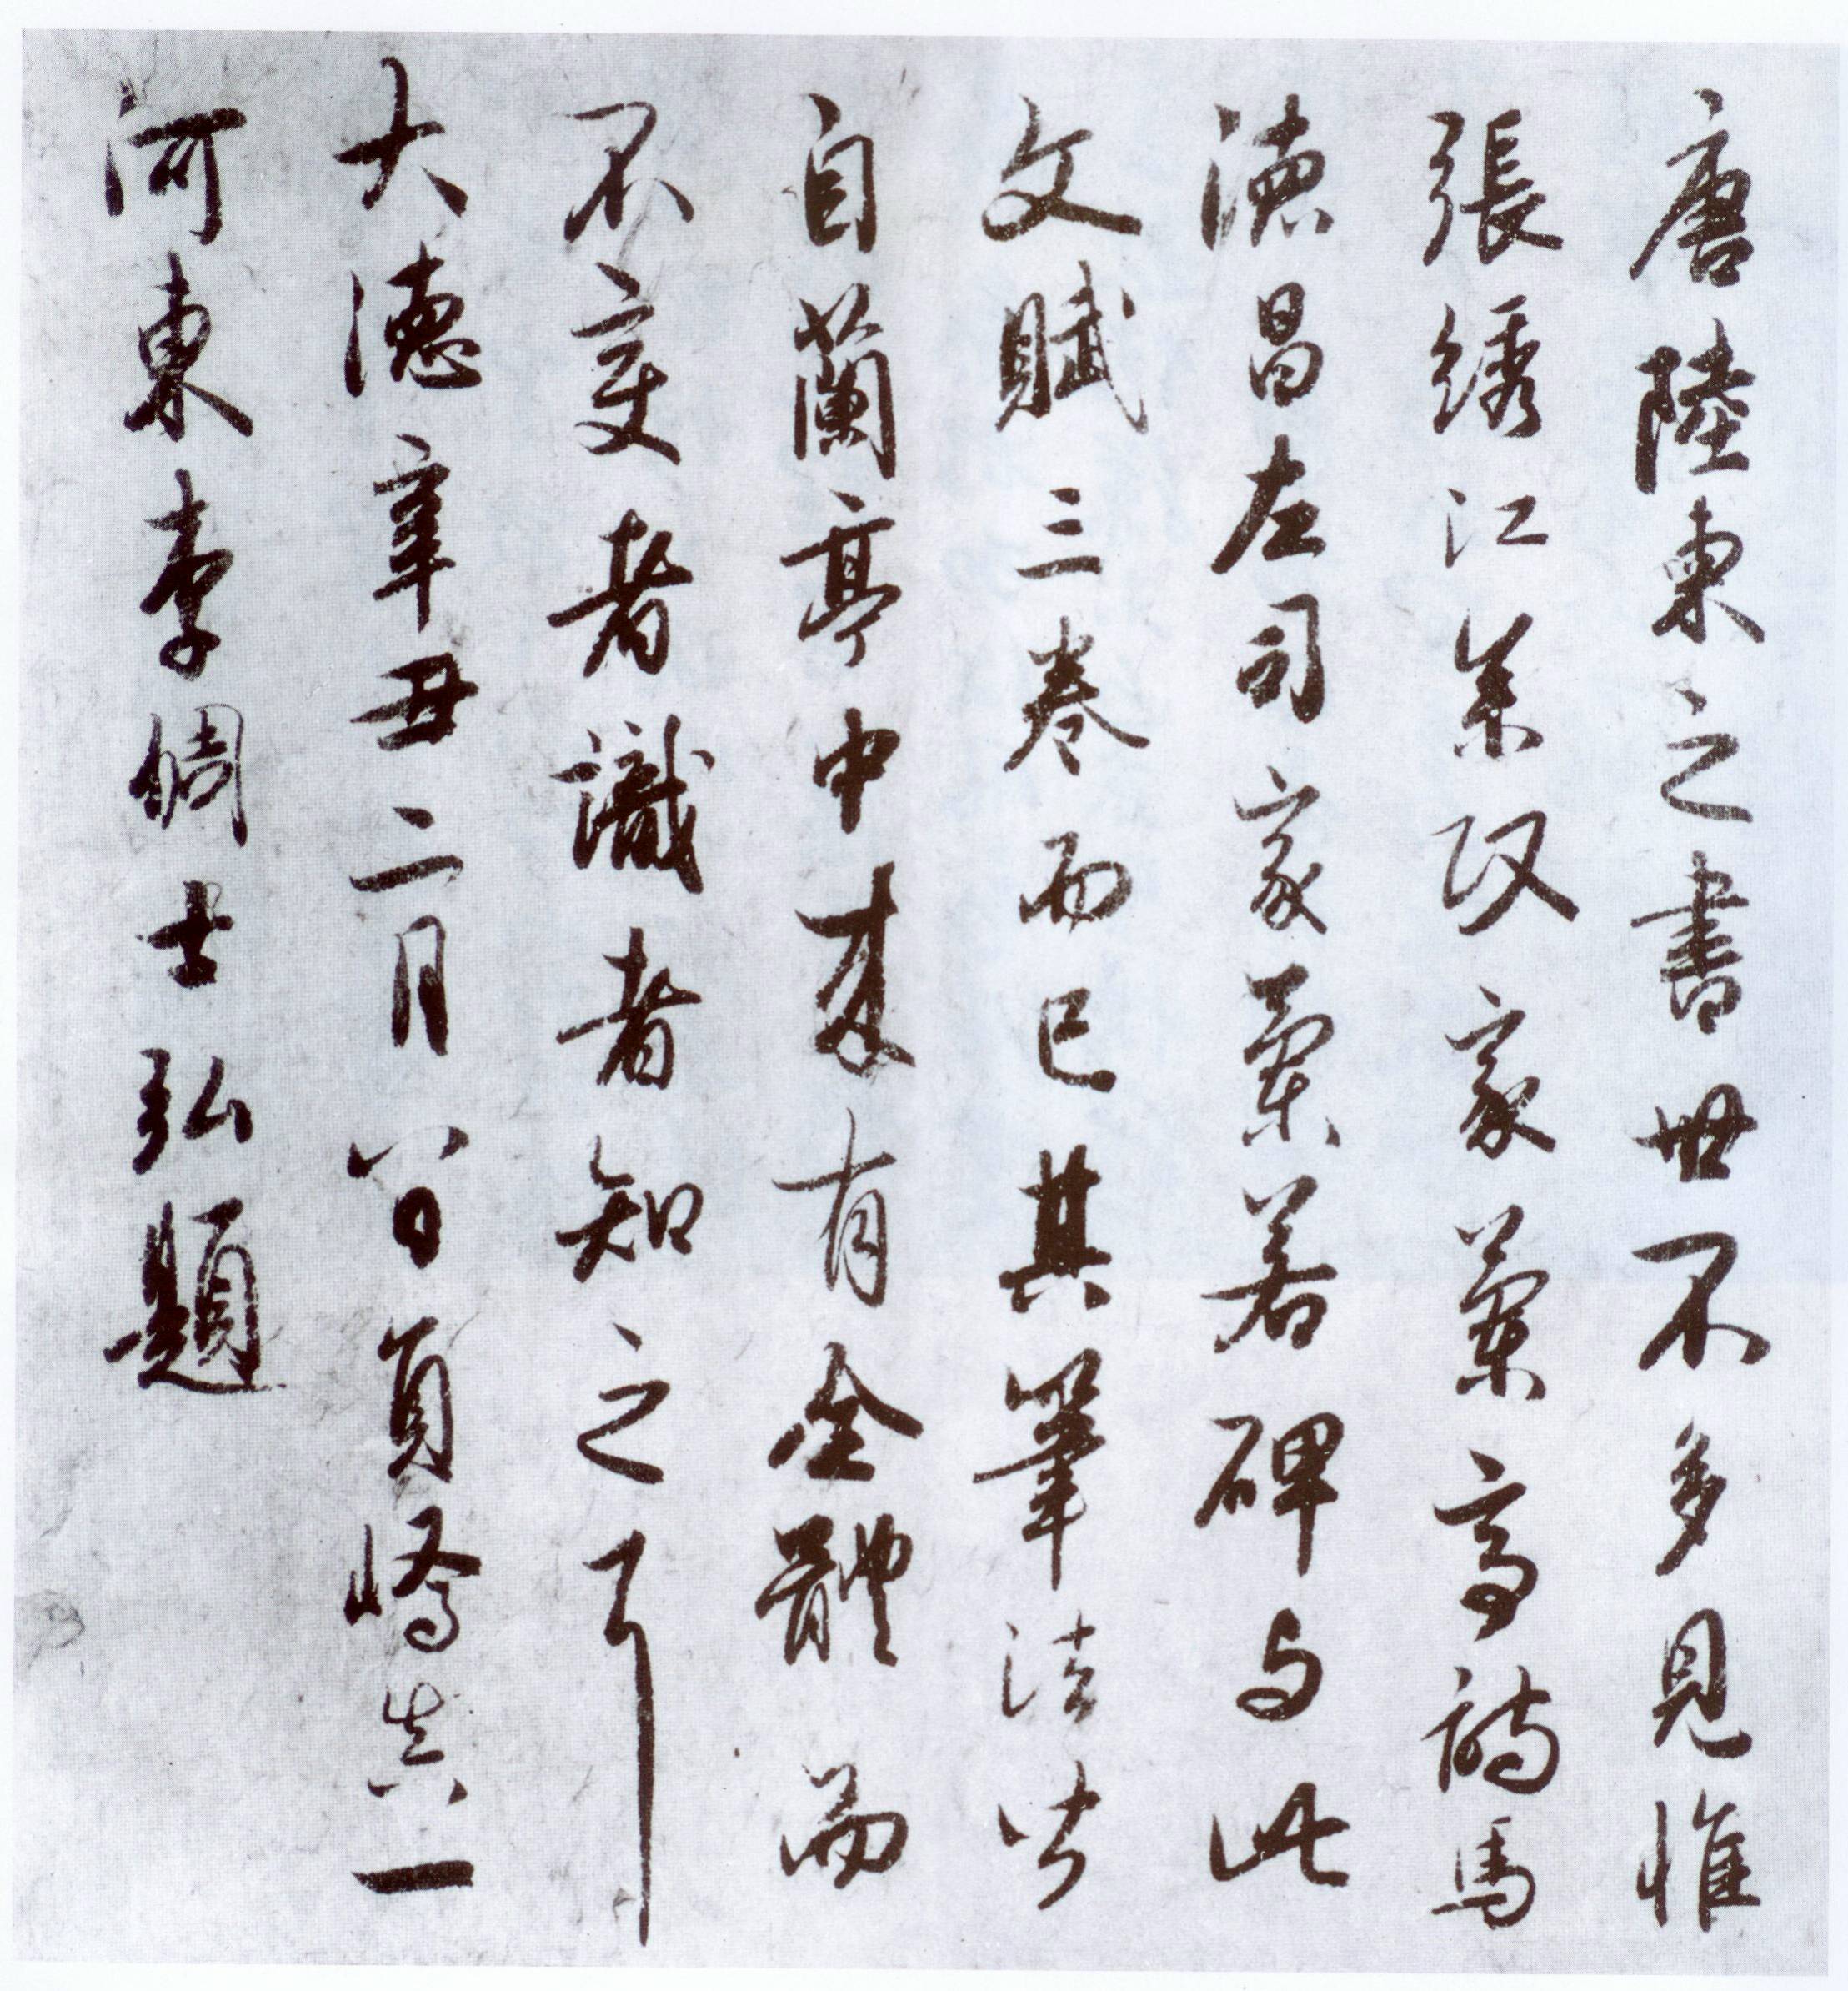 唐陸柬之書世不多見惟
張綉江叅政家蘭亭詩馬
德昌左司家蘭若碑与此
文賦三卷而已其筆法皆
自蘭亭中来有全體而
不變者識者知之耳
大德辛丑二月八日員嶠真一
河東李倜士弘題